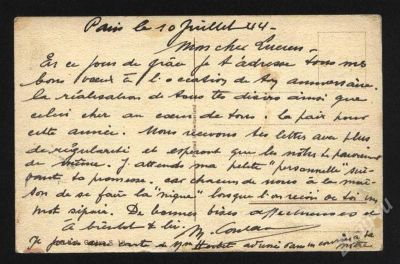 Paris le 10 Juillet 44 -
Mon cher Lucien -
En ce jour de grâce je t'adresse tous mes
bons vœux à l'occasion de ton anniversaire.
la réalisation de tous tes désirs ainsi que
celui cher au cœur de tous: la paix pour
cette année. Nous recevons tes lettres avec plus
de régularité et espérons que les nôtres te parviennent
de même. J'attends ma petite "personnelle" suivant
ta promesse. car chacun de nous à la maison
de se faire la "nique" lorsque l'on reçoit de toi un
mot séparé. De bonnes bises affectueuses et
à bientôt te lire. M.
Je carte de Mme dans